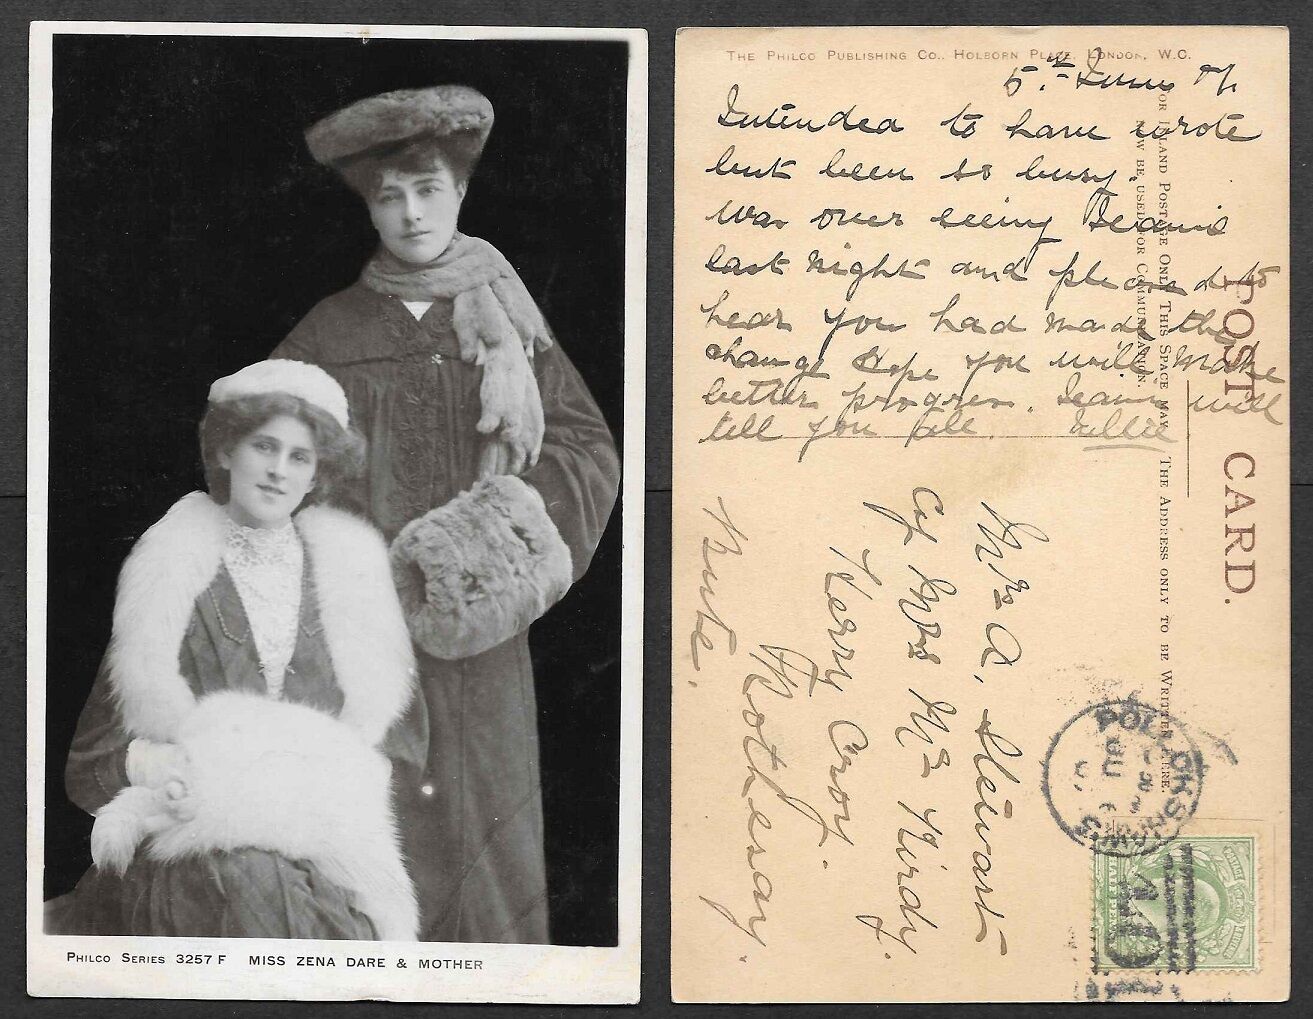 PHILCO SERIES 3257 F MISS ZENA DARE & MOTHER
THE PHILCO PUBLISHING CO., HOLBORN PLACE, LONDON, W.C.
5th June 07.
Intended to have wrote
but been so busy.
Was over seeing Jeanie
last night and pleased to
hear you had made the
change Hope you will make
better progress. Jeanie will
tell you all. Tillie
POST CARD.
FOR INLAND POSTAGE ONLY THIS SPACE MAY
NOW BE USED FOR COMMUNICATION.
THE ADDRESS ONLY TO BE WRITTEN HERE.
Mrs A. Stewart
c/o Mrs McKirdy.
Kerry Croy.
Rothesay.
Bute.
POLLOKSHAWS
POSTAGE
HALFPENNY